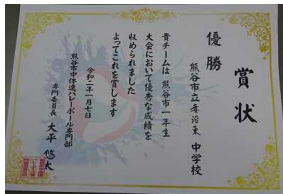 賞状
優勝
熊谷市立 東中学校
貴チームは熊谷市一年生
大会において優秀な成績を
収められました
よってこれを賞します
令和二年一月七日
熊谷市中体連バレーボール専門部
専門委員長 大平 悠太